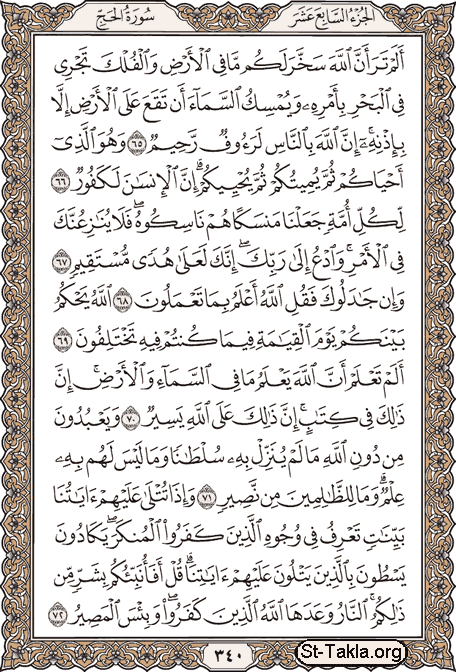 الجزء السابع عشر
سورة الحج
أَلَمْ تَرَ أَنَّ ٱللَّهَ سَخَّرَ لَكُم مَّا فِى ٱلْأَرْضِ وَٱلْفُلْكَ تَجْرِى
فِى ٱلْبَحْرِ بِأَمْرِهِۦ وَيُمْسِكُ ٱلسَّمَآءَ أَن تَقَعَ عَلَى ٱلْأَرْضِ إِلَّا
بِإِذْنِهِۦٓ ۗ إِنَّ ٱللَّهَ بِٱلنَّاسِ لَرَءُوفٌ رَّحِيمٌ ٦٥ وَهُوَ ٱلَّذِىٓ
أَحْيَاكُمْ ثُمَّ يُمِيتُكُمْ ثُمَّ يُحْيِيكُمْ ۗ إِنَّ ٱلْإِنسَٰنَ لَكَفُورٌ ٦٦
لِّكُلِّ أُمَّةٍ جَعَلْنَا مَنسَكًا هُمْ نَاسِكُوهُ ۖ فَلَا يُنَٰزِعُنَّكَ
فِى ٱلْأَمْرِ ۚ وَٱدْعُ إِلَىٰ رَبِّكَ ۖ إِنَّكَ لَعَلَىٰ هُدًى مُّسْتَقِيمٍ ٦٧
وَإِن جَٰدَلُوكَ فَقُلِ ٱللَّهُ أَعْلَمُ بِمَا تَعْمَلُونَ ٦٨ ٱللَّهُ يَحْكُمُ
بَيْنَكُمْ يَوْمَ ٱلْقِيَٰمَةِ فِيمَا كُنتُمْ فِيهِ تَخْتَلِفُونَ ٦٩
أَلَمْ تَعْلَمْ أَنَّ ٱللَّهَ يَعْلَمُ مَا فِى ٱلسَّمَآءِ وَٱلْأَرْضِ ۗ إِنَّ
ذَٰلِكَ فِى كِتَٰبٍ ۚ إِنَّ ذَٰلِكَ عَلَى ٱللَّهِ يَسِيرٌ ٧٠ وَيَعْبُدُونَ
مِن دُونِ ٱللَّهِ مَا لَمْ يُنَزِّلْ بِهِۦ سُلْطَٰنًا وَمَا لَيْسَ لَهُم بِهِۦ
عِلْمٌ ۗ وَمَا لِلظَّٰلِمِينَ مِن نَّصِيرٍ ٧١ وَإِذَا تُتْلَىٰ عَلَيْهِمْ ءَايَٰتُنَا
بَيِّنَٰتٍ تَعْرِفُ فِى وُجُوهِ ٱلَّذِينَ كَفَرُوا۟ ٱلْمُنكَرَ ۖ يَكَادُونَ
يَسْطُونَ بِٱلَّذِينَ يَتْلُونَ عَلَيْهِمْ ءَايَٰتِنَا ۗ قُلْ أَفَأُنَبِّئُكُم بِشَرٍّ مِّن
ذَٰلِكُمُ ۗ ٱلنَّارُ وَعَدَهَا ٱللَّهُ ٱلَّذِينَ كَفَرُوا۟ ۖ وَبِئْسَ ٱلْمَصِيرُ ٧٢
٣٤٠
St-Takla.org